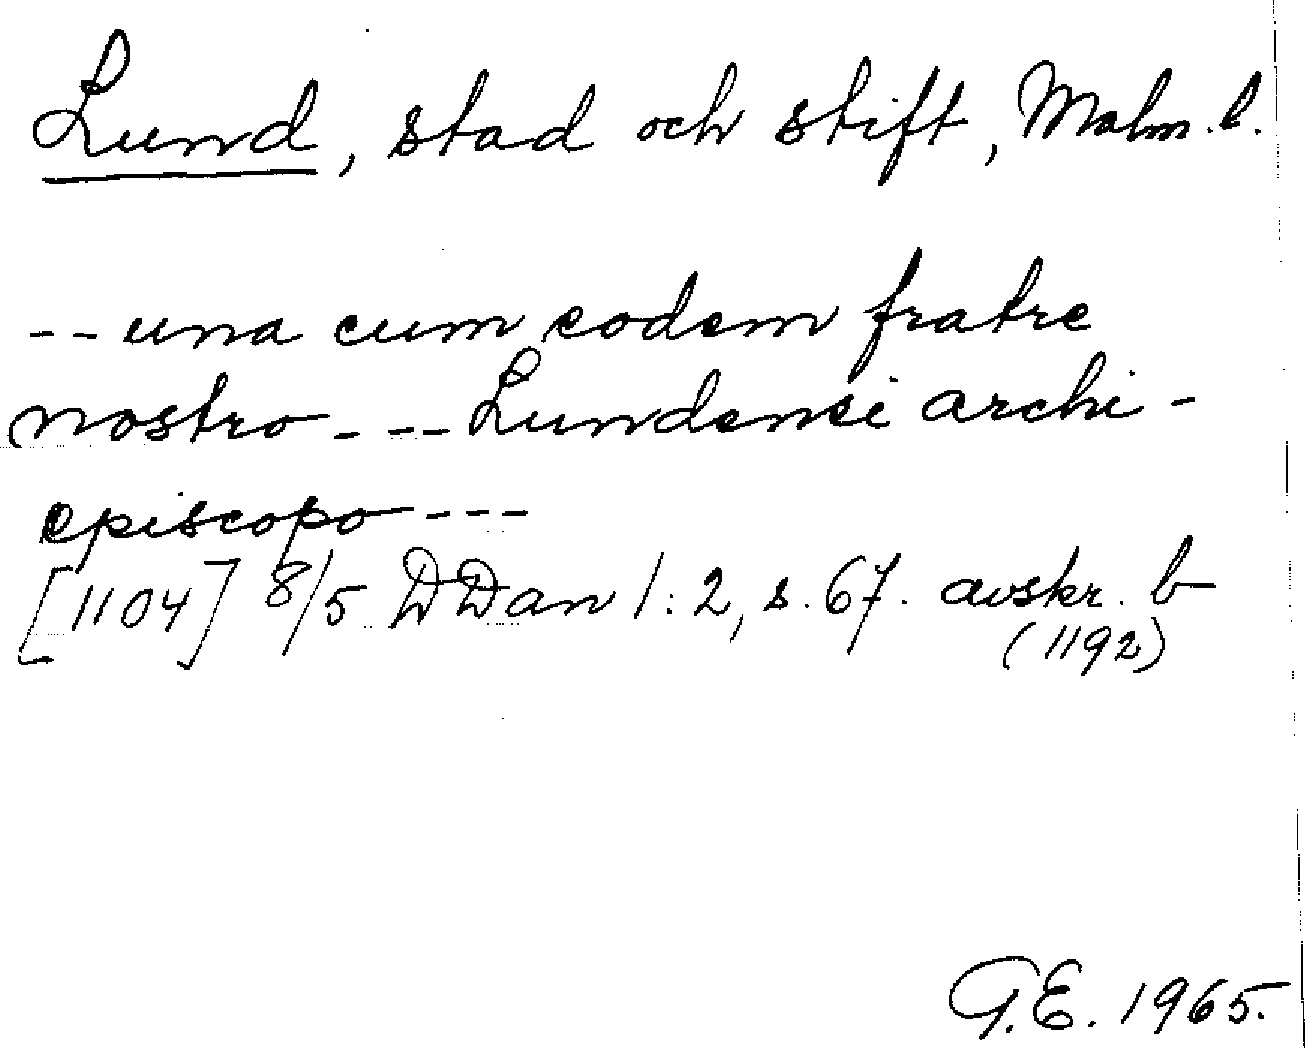 Lund, stad och stift, Malm. l.
-- una cum eodem fratre
nostro - --- Lundensi archi-
episcopo ---
[1104] 8/5 DDan 1:2, s. 67. avskr. b
(1192)
G.E. 1965.